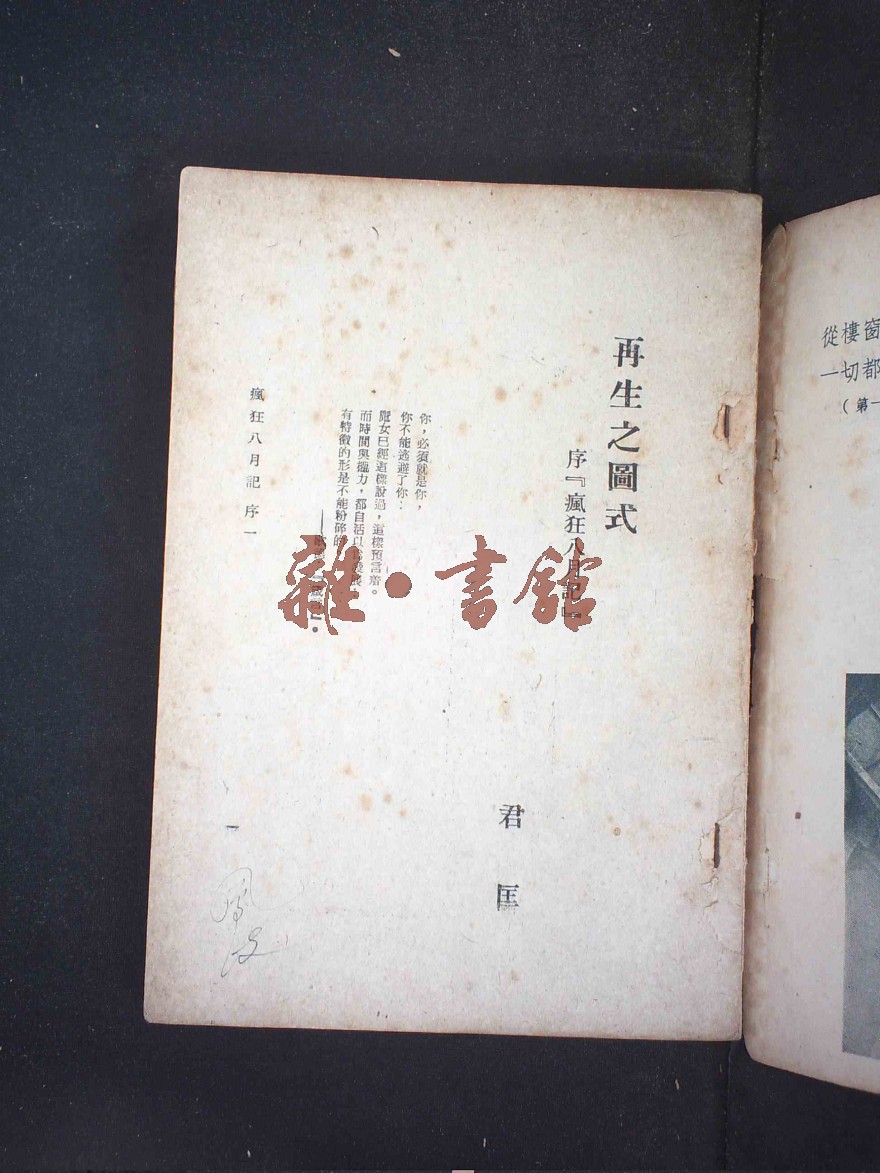 再生之圖式
序『瘋狂八月記』
君匡
你，必須就是你，
你不能逃避了你：
魔女已經這樣說過，這樣預言着。
而時間與權力，都自活以
有特徵的形是不能粉碎的
瘋狂八月記 序一
一
雜·書館
從樓窗
一切都
（第一